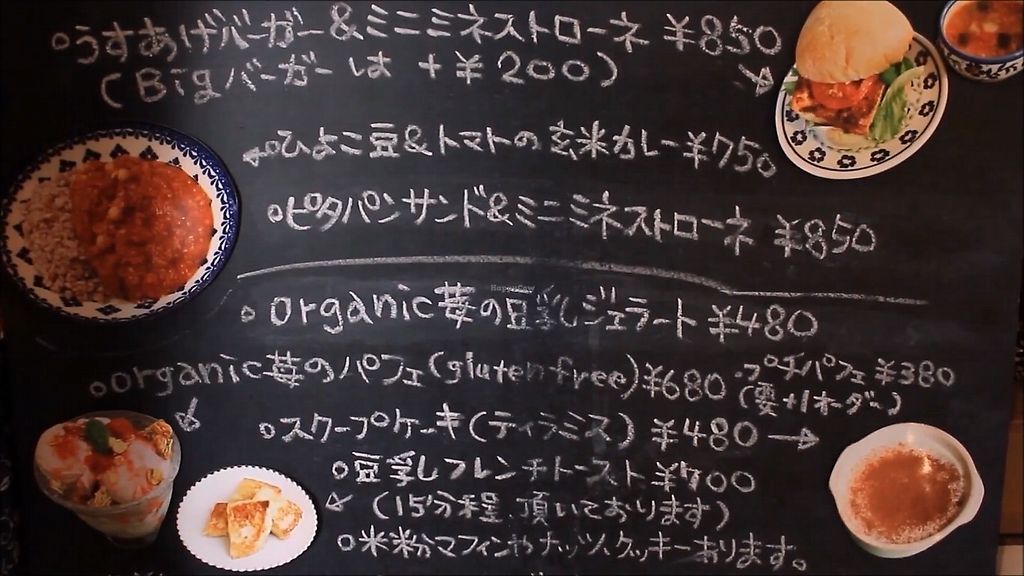 うすあげバーガー&ミニミネストローネ ¥850
(Bigバーガーは +¥200)
ひよこ豆&トマトの玄米カレー ¥750
ピタパンサンド&ミニミネストローネ ¥850
HappyCow
organic苺の豆乳ジェラート ¥480
organic苺のパフェ(gluten free) ¥680 ・プチパフェ ¥380
(要+1オーダー)
スクープケーキ(ティラミス) ¥480
豆乳フレンチトースト ¥700
(15分程、頂いております)
米粉マフィンやナッツ、クッキーあります。